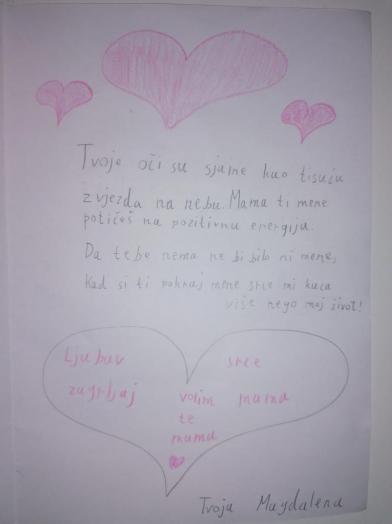 Tvoje oči su sjajne kao tisuću
zvjezda na nebu. Mama ti mene
potičeš na pozitivnu energiju.
Da tebe nema ne bi bilo ni mene,
kad si ti pokraj mene srce mi kuca
više nego moj život!
Ljubav srce
zagrljaj volim mama
te
mama
Tvoja Magdalena